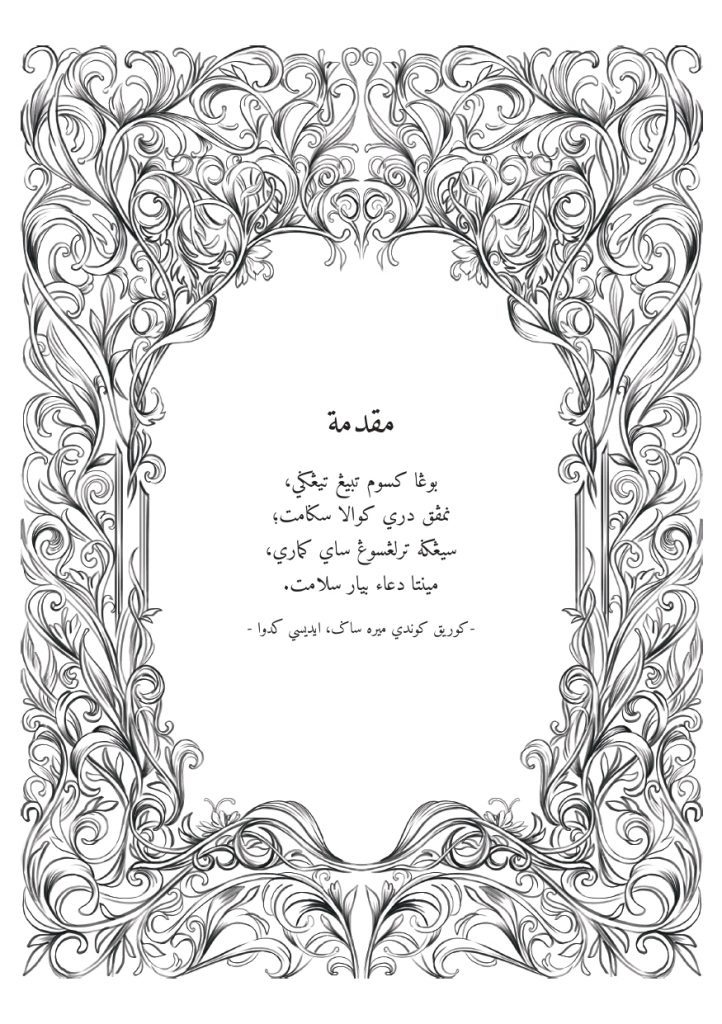 مقدمة
بوڠا کسوم تبيڠ تيڠݢي،
نمڤق دري کوالا سکامت؛
سيڠݢه ترلڠسوڠ ساي کماري،
مينتا دعاء بيار سلامت.
- کوريق کوندي ميره ساݢ، ايديسي کدوا -